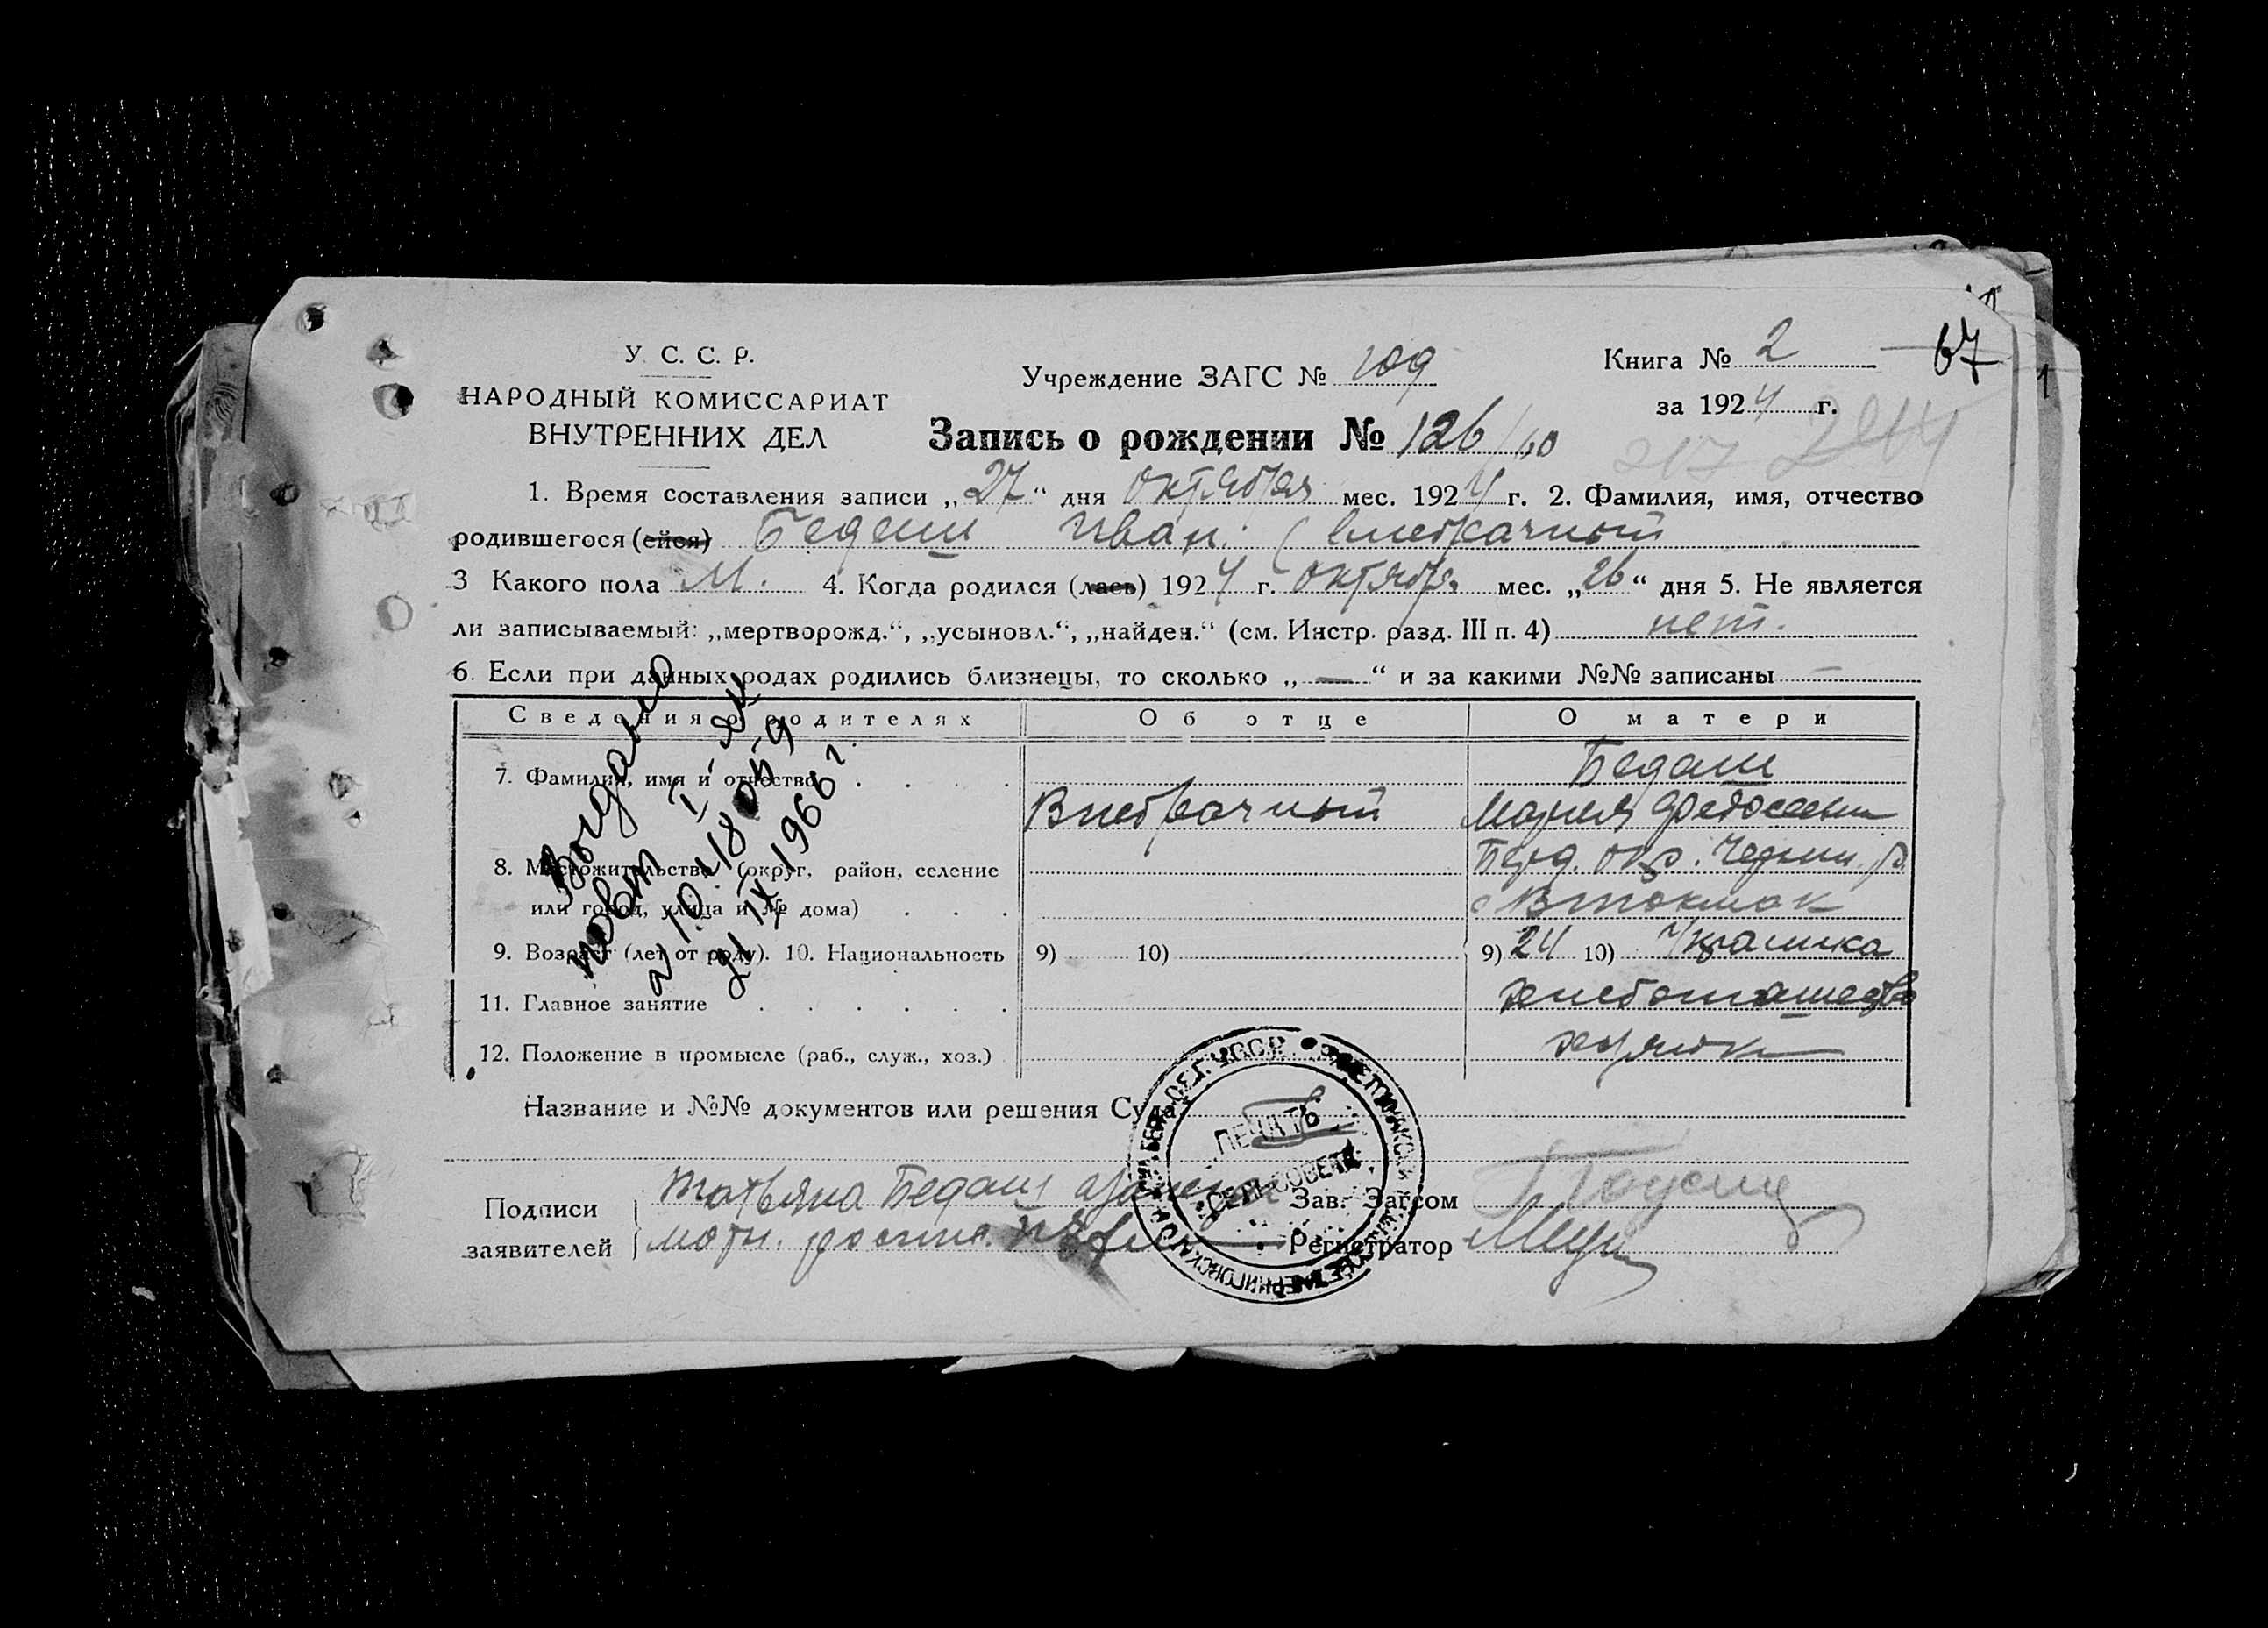 У. С. С. Р.
НАРОДНЫЙ КОМИССАРИАТ
ВНУТРЕННИХ ДЕЛ
Учреждение ЗАГС № 109
Книга № 2
67
за 1924 г.
Запись о рождении № 126/10
217
1. Время составления записи „27“ дня октября мес. 1924 г. 2. Фамилия, имя, отчество
родившегося (ейся) Бедаш Иван (внебрачный
3 Какого пола М. 4. Когда родился (лась) 1924 г. октября мес. „26“ дня 5. Не является
ли записываемый: „мертворожд.“, „усыновл.“, „найден.“ (см. Инстр. разд. III п. 4) нет.
6. Если при данных родах родились близнецы, то сколько „—“ и за какими №№ записаны —
Сведения о родителях Об отце О матери
7. Фамилия, имя и отчество Бедаш
Внебрачный Мария Федосеевн
8. Местожительство (округ, район, селение Берд. окр. Черниг. р.
или город, улица и № дома) с Втокмак
9. Возраст (лет от роду). 10. Национальность 9) 10) 9) 24 10) Украинка
11. Главное занятие хлебопашество
12. Положение в промысле (раб., служ., хоз.)
Выдано
повт I-ЯК
21 IX 1966 г.
Название и №№ документов или решения Суда
ПЕЧАТЬ
СЕЛЬСОВЕТА
Подписи
заявителей
Татьяна Бедаш
Зав. Загсом
Регистратор